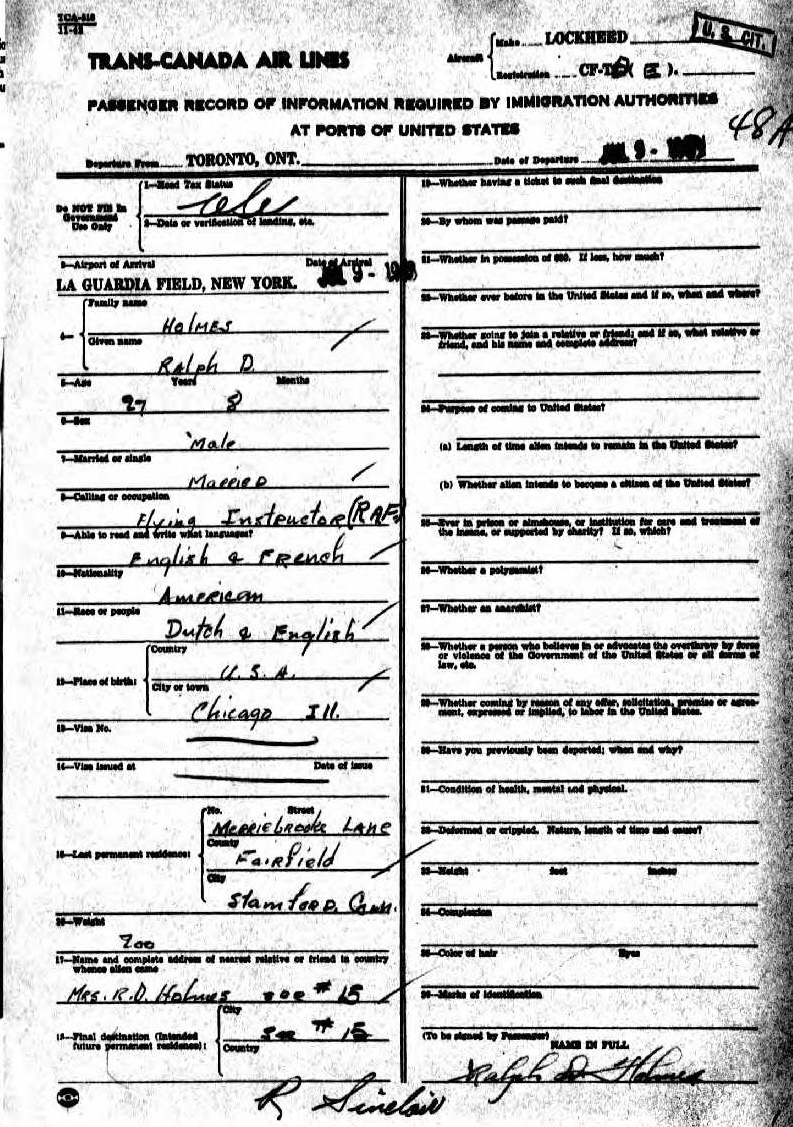 TCA-318
11-42
TRANS-CANADA AIR LINES
Aircraft
Make LOCKHEED
Registration CF-T
U. S. CIT.
PASSENGER RECORD OF INFORMATION REQUIRED BY IMMIGRATION AUTHORITIES
AT PORTS OF UNITED STATES
48A
Departure From TORONTO, ONT.
Date of Departure 9 -
Do NOT Fill In
Government
Use Only
1—Head Tax Status
2—Date or verification of landing, etc.
3—Airport of Arrival Date of Arrival
LA GUARDIA FIELD, NEW YORK. 9 -
4— Family name
HOLMES
Given name
Ralph D.
5—Age Years Months
27 8
6—Sex
Male
7—Married or single
Married
8—Calling or occupation
Flying Instructor (RAF)
9—Able to read and write what languages?
English & French
10—Nationality
American
11—Race or people
Dutch & English
12—Place of birth:
Country
U. S. A.
City or town
Chicago Ill.
13—Visa No.
14—Visa Issued at Date of issue
15—Last permanent residence:
No. Street
Merriebrooke Lane
County
Fairfield
City
Stamford. Conn.
16—Weight
200
17—Name and complete address of nearest relative or friend in country
whence alien came
Mrs. R.D. Holmes see # 15
18—Final destination (Intended
future permanent residence):
City
See # 15
Country
19—Whether having a ticket to such final destination
20—By whom was passage paid?
21—Whether in possession of $50. If less, how much?
22—Whether ever before in the United States and if so, when and where?
23—Whether going to join a relative or friend; and if so, what relative or
friend, and his name and complete address?
24—Purpose of coming to United States?
(a) Length of time alien intends to remain in the United States?
(b) Whether alien intends to become a citizen of the United States?
25—Ever in prison or almshouse, or institution for care and treatment of
the insane, or supported by charity? If so, which?
26—Whether a polygamist?
27—Whether an anarchist?
28—Whether a person who believes in or advocates the overthrow by force
or violence of the Government of the United States or all forms of
law, etc.
29—Whether coming by reason of any offer, solicitation, promise or agree-
ment, expressed or implied, to labor in the United States.
30—Have you previously been deported; when and why?
31—Condition of health, mental and physical.
32—Deformed or crippled. Nature, length of time and cause?
33—Height feet inches
34—Complexion
35—Color of hair Eyes
36—Marks of identification
(To be signed by Passenger)
NAME IN FULL
Ralph D Holmes
R Sinclair